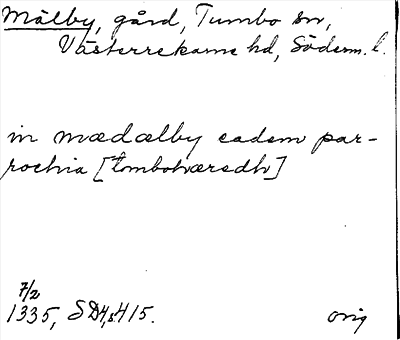 Mälby, gård, Tumbo sn,
Västerrekarne hd, Söderm. l.
in mædælby eadem par-
rochia [tombohæredh]
7/2
1335, SD4, s 415.
orig